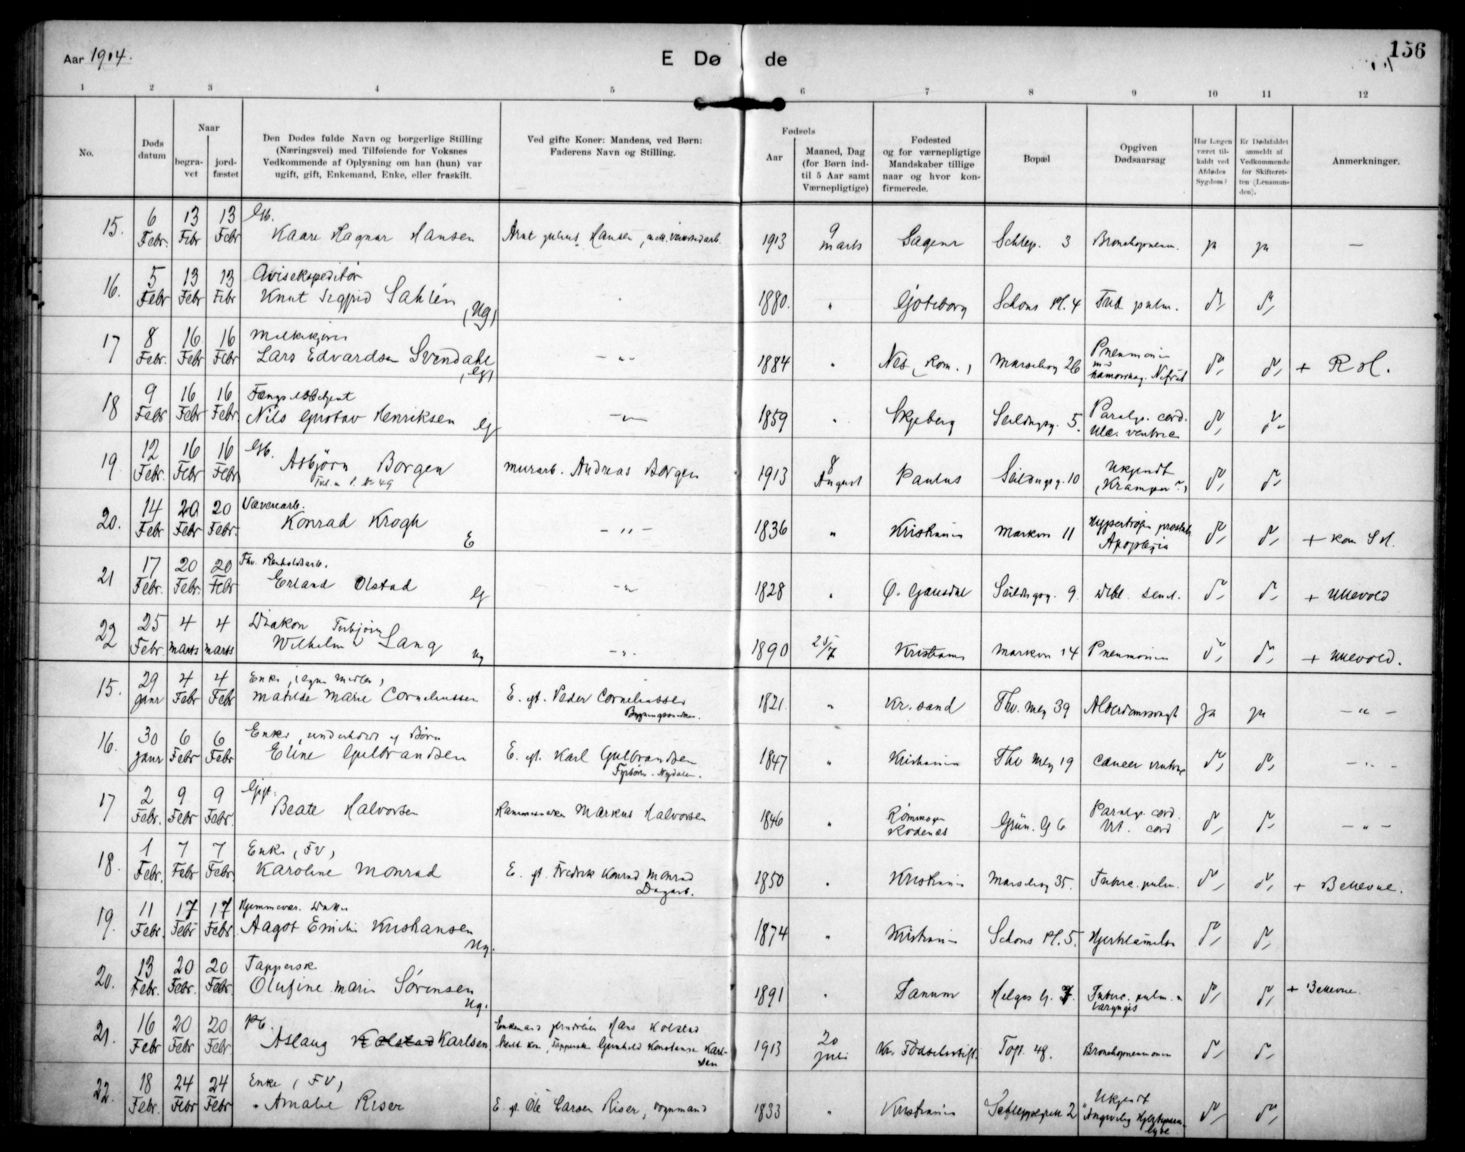 Aar 1914.
E Døde
156
1 2 3 4 5 6 7 8 9 10 11 12
No.
Døds datum
Naar
begravet
jordfæstet
Den Dødes fulde Navn og borgerlige Stilling
(Næringsvei) med Tilføiende for Voksnes
Vedkommende af Oplysning om han (hun) var
ugift, gift, Enkemand, Enke, eller fraskilt.
Ved gifte Koner: Mandens, ved Børn:
Faderens Navn og Stilling.
Fødsels
Aar
Maaned, Dag
(for Børn indtil 5 Aar samt
Værnepligtige)
Fødested
og for værnepligtige
Mandskaber tillige
naar og hvor konfirmerede.
Bopæl
Opgiven
Dødsaarsag
Har Lægen været tilkaldt ved Afdødes Sygdom?
Er Dødsfaldet anmeldt af Vedkommende for Skifteretten (Lensmanden).
Anmerkninger.
15. 6 Febr. 13 Febr 13 Febr Gb. Kaare Ragnar Hansen Arnt Julius Hansen, 1913 9 marts Sagene Schlep. 3 Bronchopneum. ja ja —
16. 5 Febr 13 Febr 13 Febr Avisekspeditør Knut Sigfrid Sahlén (Ug) 1880. Göteborg Schous Pl. 4 Tub. pulm.
17 8 Febr. 16 Febr 16 Febr Melkekjører Lars Edvardsen Svendahl (G) 1884 Nes (Rom.) Marselisg 26 Pneumonie Nefrit +
18 9 Febr 16 Febr 16 Febr. Nils Gustav Henriksen G 1859 Skjeberg Seildugsg. 5. Paralys. cord. Ulc. ventric
19 12 Febr. 16 Febr 16 Febr. Gb. Asbjørn Borgen murarb. Andreas Borgen 1913 8 August Paulus Seildugsg. 10 Ukjendt (Kramper?)
20. 14 Febr 20 Febr 20 Febr. Vævenarb. Konrad Krogh E 1836 Kristiania Markvn 11 Hypertrofia prostat. Apoplexia +
21 17 Febr. 20 Febr. 20 Febr Fhv. Renholdsarb. Erland Olstad G 1828 Ø. Gausdal Seildugsg. 9. Debil. senil. + Ullevold
22 25 Febr. 4 marts 4 marts Diakon Torbjørn Wilhelm Lang Ug 1890 25/7 Kristiania Markvn 14 Pneumonie + Ullevold.
15. 29 janr 4 Febr 4 Febr Enke, (egne midler) Matilde Marie Corneliussen E. eft. Peder Corneliussen 1821. Kr.sand Thv. Mey 39 Alderdomssvagh. ja ja
16. 30 janr 6 Febr 6 Febr Enke, underholdt af Børn Eline Gulbrandsen E. eft. Karl Gulbrandsen Fyrbøter. Nydalen. 1847 Kristiania Thv Mey 19 Cancer ventric
17 2 Febr. 9 Febr 9 Febr Gift Beate Halvorsen Markus Halvorsen 1846 Rømmsog. Rødenes Grün. G 6 Paralys. cord. Vit. cord
18. 1 Febr. 7 Febr 7 Febr. Enke, (FV) Karoline Monrad E. eft. Fredrik Konrad Monrad Dagarb. 1850 Kristiania Marselisg 35. Tuberc. pulm. + Bellevue.
19. 11 Febr. 17 Febr 17 Febr Hjemmevær. Datter Aagot Emilie Kristiansen Ug. 1874 Kristiania Schous Pl. 5. Hjertelammelse
20. 13 Febr. 20 Febr. 20 Febr Tapperske Olufine Marie Sørensen Ug. 1891 Fanum Helges G. 7. Tuberc. pulm. laryngis + Bellevue.
21. 16 Febr 20 Febr. 20 Febr Aslaug Kolstad Karlsen Enkemand Hans Kolstad Tapperske Gunhild Konstanse Karlsen 1913 20 juli Kr. Fødselsstift. Toft. 48. Bronchopneumonie
22. 18 Febr. 24 Febr 24 Febr Enke, (FV) Amalie Riser E. eft. Ole Larsen Riser, vognmand 1833 Kristiania Schleppegrell 2 Ukjendt